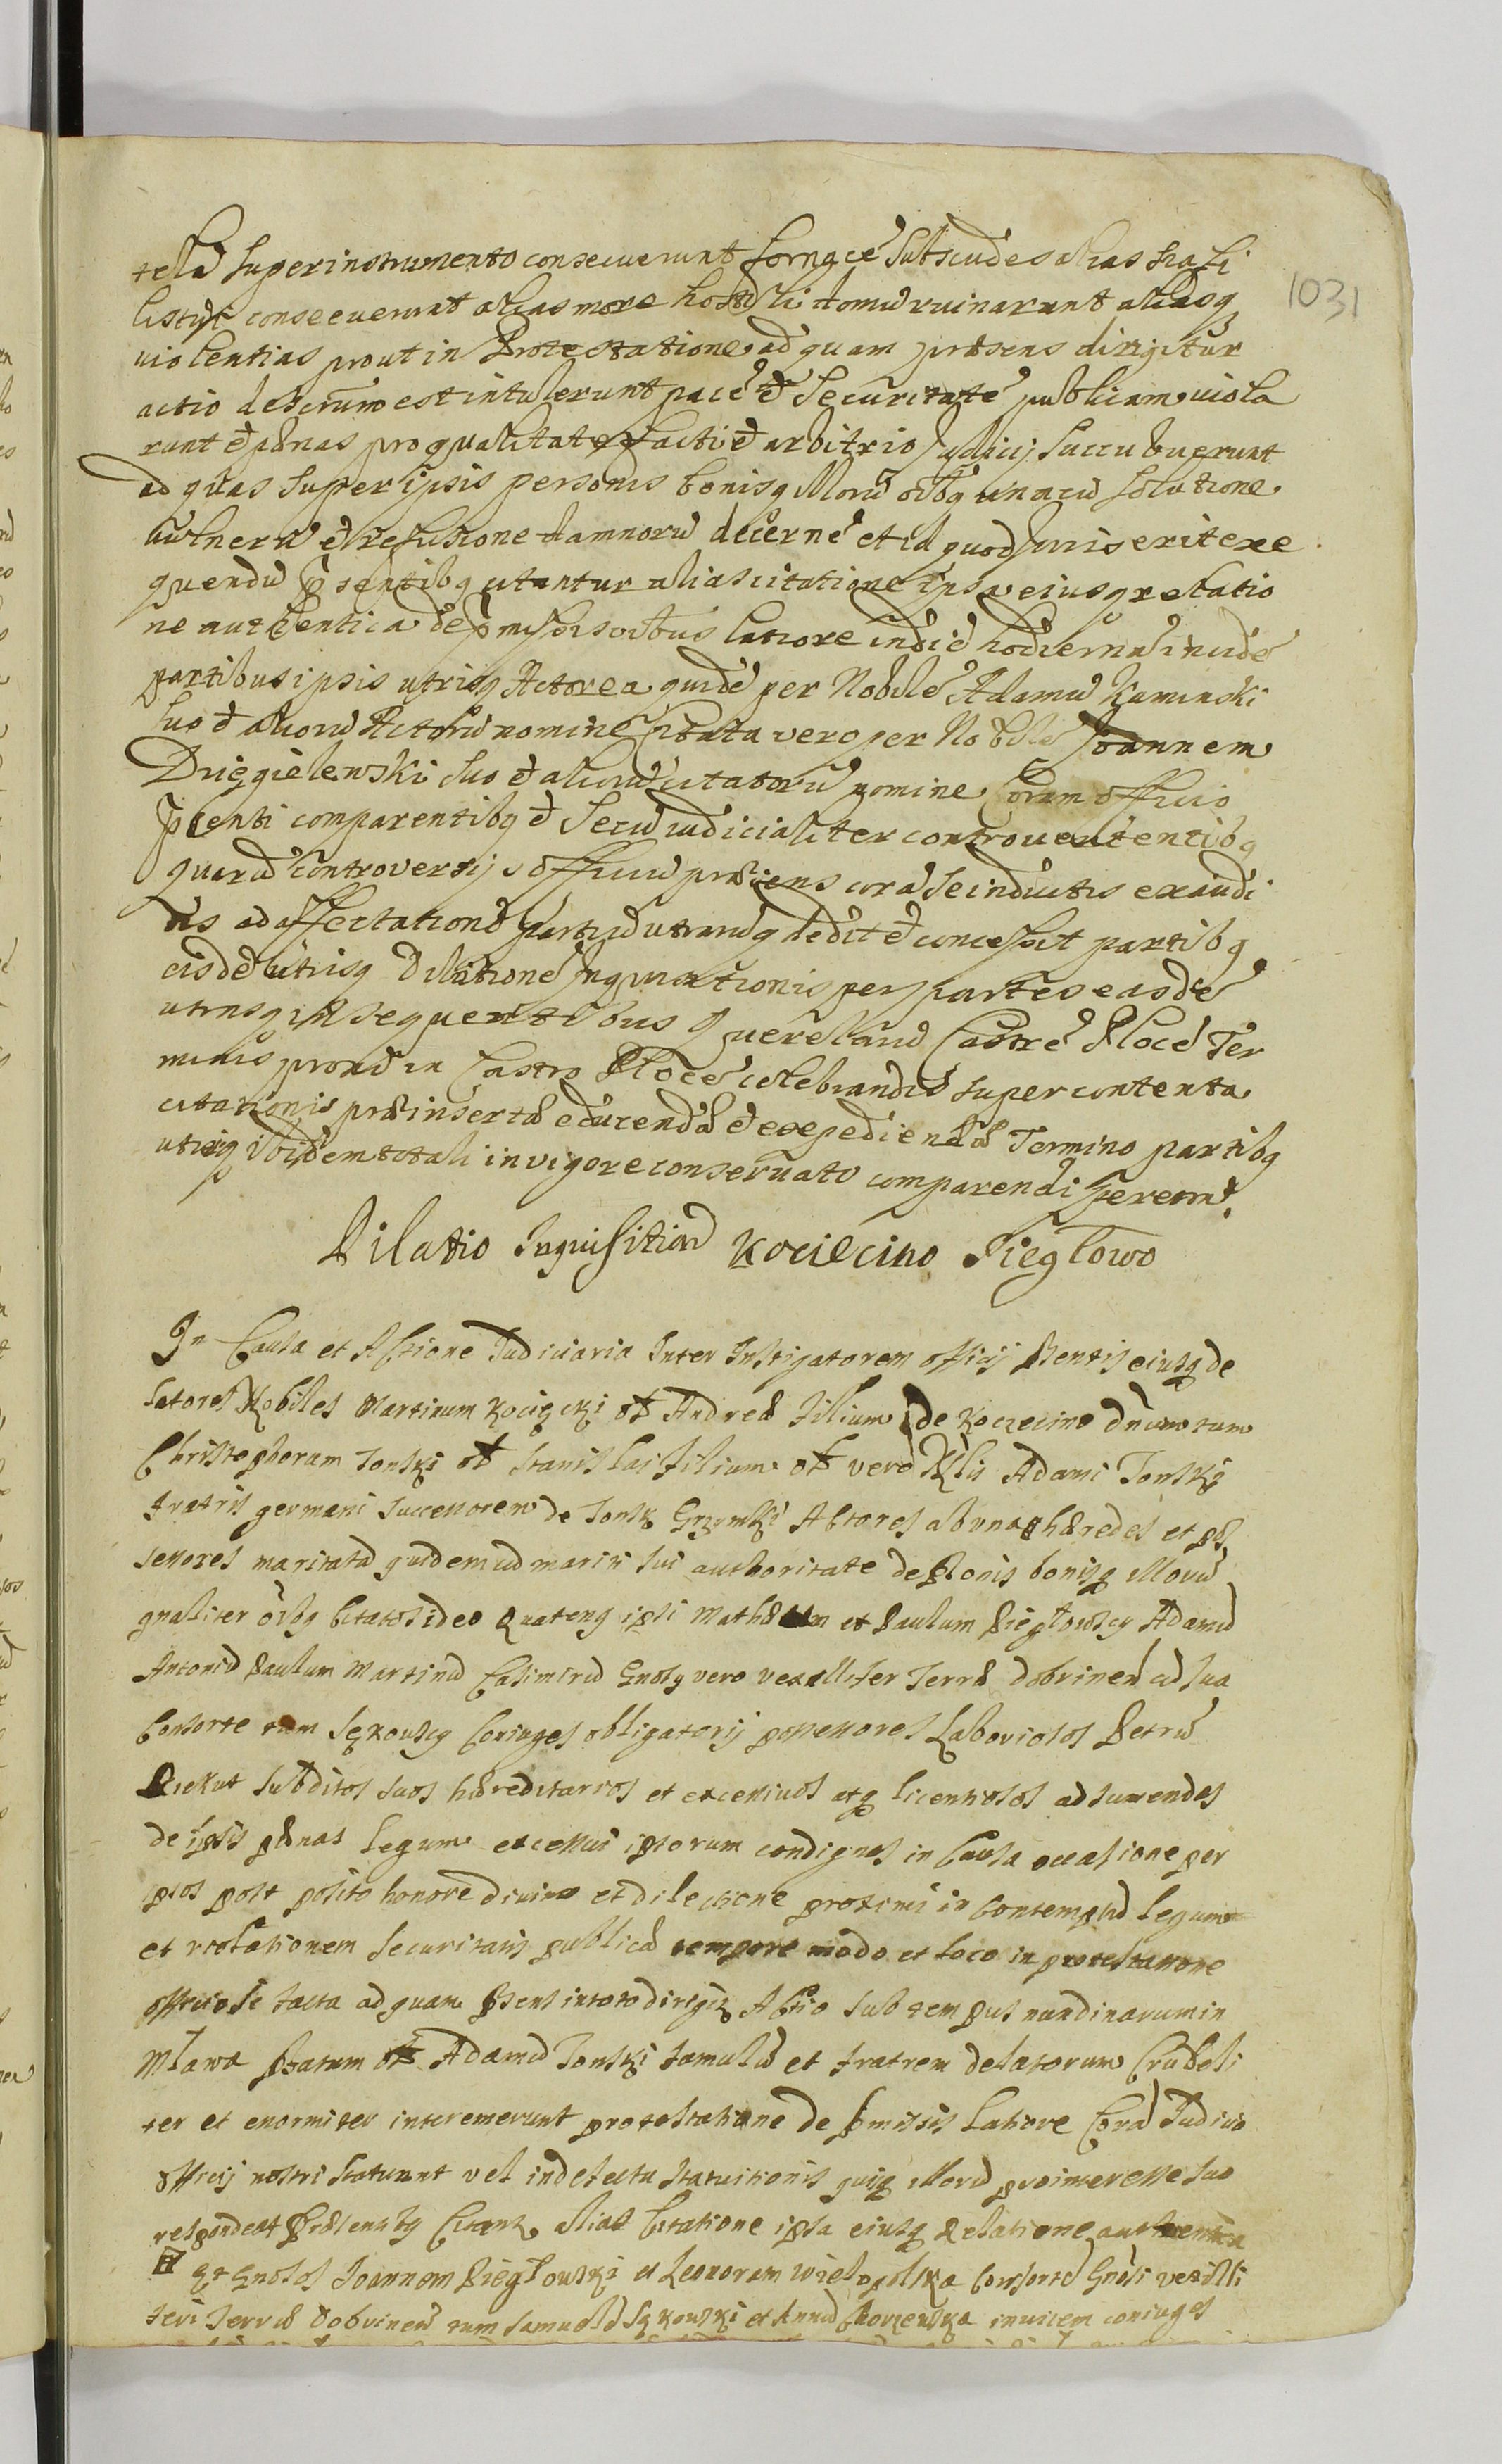 tela super instrumento consecuerunt fornacē subscudes alias
consecuerunt alias more hostili domū ruinarunt aliasq
violentias prout in Protestatione ad quam præsens dirigitur
actio descriptum est intulerunt pacē et Securitatē publicam viola
runt et pænas pro qualitate facti et arbitrio Judicij succubuerunt
ad quas super ipsis personis bonisq illorū oībq unacū solutione
vulnerū et refusione damnorū decerni et id quod Juris erit exe
quendū pñsentibq citantur alias citatione ipsa eiusq relatio
ne authentica de pmissis oībus latiore in diē hodiernā incidē
partibus ipsis utrisq Actorea quidē per Nobilē Adamū Kaminski
suo et aliorū Actorū nomine Citata vero per Nobilē Joannem
Dzięgielewski suo et aliorū citatorū nomine Coram officio
pñenti comparentibq et Secū iudicialiter controvertentibq
quarū controversijs officiū præsens corā se inductis exaudi
tis ad affectationē partiū utrarūq dedit et concessit partibq
eisdē utrisq Dilationē Inquisitionis per partes easdē
utrasq in sequentibus Querelarū Castrē Plocē Ter
minis proxē in Castro Plocē celebrandis super contenta
citationis præinsertæ educendæ et expediendæ Termino partibq
utrisq ibidem totali in vigore conservato comparendi peremt.
Dilatio Inquisitionū Kociecino Pieglowo
In Causa et Actione Judiciaria Inter Instigatorem officij pñentis eiusq de
latores Nobiles Martinum Kocięcki olī Andreæ filium de Kocięcino dñum tum
Christophorum Jonski olī Stanislai filium olī vero Nlis Adami Jonski
fratris germani successorem de Jonsk Grzymki Actores ab una hæredes et pos
sessores maritatā quidem ad mariti sui authoritate de p̄lonis bonisq illorū
gnaliter oībq Citatos ideo Quatenq ipsi Mathæum et Paulum Pieglowscy Adamū
Antoniū Paulum Martinū Casimirū Gnosq vero vexillifer Terræ dobrinen cū sua
Consorte tum Sękowscy Coniuges obligatorij possessores Laboriosos Petrū
Piekut subditos suos hæreditarios et excessivos atq licentiosos ad sumendas
de ipsis pænas legum excessui ipsorum condignas in Causa occasione per
ipsos post posito honore divino et dilectione proximi in Contemptū legum
et violationem securitatis publicæ tempore modo et loco in protestatione
officiose facta ad quam pñsens in toto dirigiť Actio sub tempus nundinarum in
Mlawa pñatum olī Adamū Jonski famulū et fratrem delatorum Crudeli
ter et enormiter interemerunt protestatione de pmissis latiore Corā Judicio
officij nostri statuant vel in defectu statuitionis quisq illorū pro interesse suo
respondeat præsentibq Citantꝛ alias Citatione ipsa eiusq Relatione authentica
et Gnosos Joannem Pieglowski et Leonoram Wielopolska Consortē Gnosi vexilli
feri Terræ Dobrinen tum Samuelē Sękowski et Annā invicem coniuges